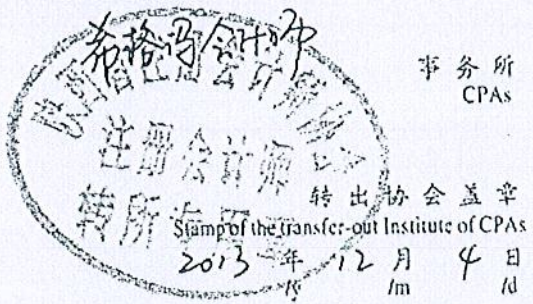 希格玛会计师
事务所
CPAs
陕西省注册会计师协会
注册会计师
转所专用章
转出协会盖章
Stamp of the transfer-out Institute of CPAs
2013 年 12 月 4 日
/y /m /d